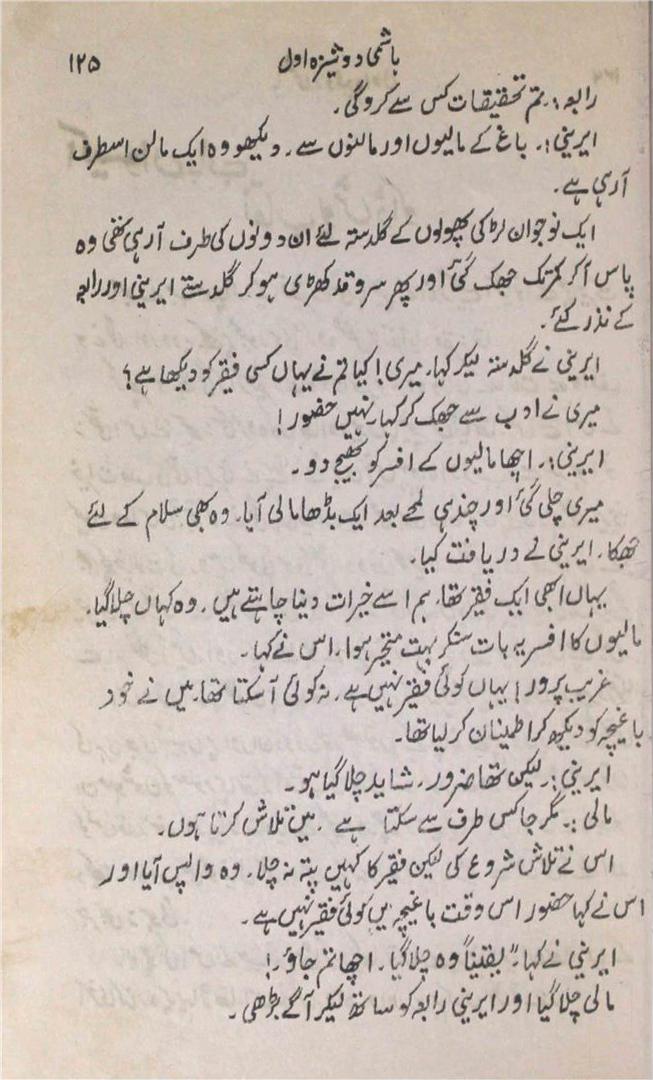 باشمی دوشیزہ اول ۱۲۵
رابعہ:۔ تم تحقیقات کس سے کروگی۔
ایرینی:۔ باغ کے مالیوں اور مالنوں سے۔ دیکھو وہ ایک مالن اسطرف
آرہی ہے۔
ایک نوجوان لڑکی پھولوں کے گلدستہ لئے ان دونوں کی طرف آرہی تھی وہ
پاس آکر کمر تک جھک گئی اور پھر سروقد کھڑی ہو کر گلدستے ایرینی اور رابعہ
کے نذر کئے۔
ایرینی نے گلدستہ لیکر کہا۔ میری! کیا تم نے یہاں کسی فقیر کو دیکھا ہے؟
میری نے ادب سے جھک کر کہا۔ نہیں حضور!
ایرینی:۔ اچھا مالیوں کے افسر کو بھیج دو۔
میری چلی گئی اور چند ہی لمحے بعد ایک بڈھا مالی آیا۔ وہ بھی سلام کے لئے
جھکا۔ ایرینی نے دریافت کیا۔
یہاں ابھی ایک فقیر تھا۔ ہم اسے خیرات دینا چاہتے ہیں۔ وہ کہاں چلا گیا۔
مالیوں کا افسر یہ بات سنکر بہت متحیر ہوا۔ اس نے کہا۔
غریب پرور! یہاں کوئی فقیر نہیں ہے۔ نہ کوئی آسکتا تھا۔ میں نے خود
باغیچہ کو دیکھ کر اطمینان کر لیا تھا۔
ایرینی:۔ لیکن تھا ضرور۔ شاید چلا گیا ہو۔
مالی:۔ مگر جا کس طرف سے سکتا ہے۔ میں تلاش کرتا ہوں۔
اس نے تلاش شروع کی لیکن فقیر کا کہیں پتہ نہ چلا۔ وہ واپس آیا اور
اس نے کہا حضور اس وقت باغیچہ میں کوئی فقیر نہیں ہے۔
ایرینی نے کہا۔ "یقیناً وہ چلا گیا۔ اچھا تم جاؤ۔!
مالی چلا گیا اور ایرینی رابعہ کو ساتھ لیکر آگے بڑھی۔